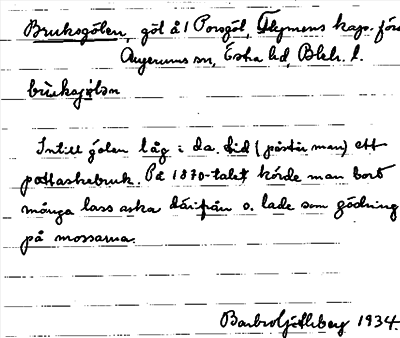 Bruksgölen, göl å 1 Porsgöl, Flymens kap. förs
Augerums sn, Östra hd, Blek. l.
brùksjy̧lən
Intill gölen låg i da. tid (påstår man) ett
pottaskebruk. På 1870-talet körde man bort
många lass aska därifrån o. lade som gödning
på mossarna.
Barbro Ljethberg 1934.